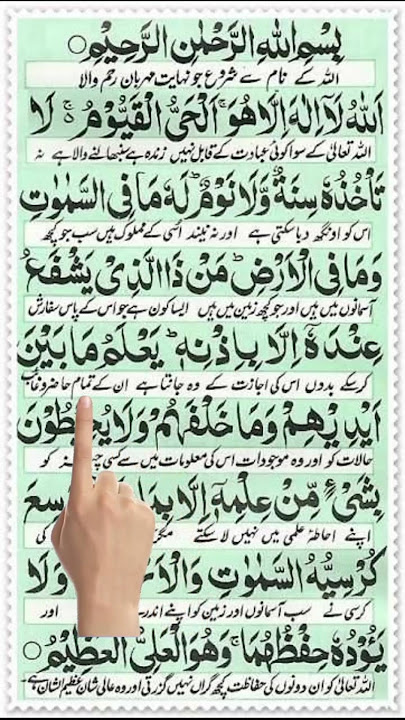 بِسْمِ اللهِ الرَّحْمٰنِ الرَّحِيْمِ ○
اللہ کے نام سے شروع جو نہایت مہربان رحم والا
اَللهُ لَاۤ اِلٰهَ اِلَّا هُوَ ۚ اَلْحَیُّ الْقَیُّوْمُ ۚ لَا
اللہ تعالیٰ کے سوا کوئی عبادت کے قابل نہیں زندہ ہے سنبھالنے والا ہے نہ
تَاْخُذُهٗ سِنَةٌ وَّلَا نَوْمٌ ؕ لَهٗ مَا فِی السَّمٰوٰتِ
اس کو اونگھ دبا سکتی ہے اور نہ نیند اسی کے مملوک ہیں سب جو کچھ
وَمَا فِی الْاَرْضِ ؕ مَنْ ذَا الَّذِیْ یَشْفَعُ
آسمانوں میں ہیں اور جو کچھ زمین میں ہیں ایسا کون ہے جو اس کے پاس سفارش
عِنْدَهٗۤ اِلَّا بِاِذْنِهٖ ؕ یَعْلَمُ مَا بَیْنَ
کر سکے بدوں اس کی اجازت کے وہ جانتا ہے ان کے تمام حاضر و غائب
اَیْدِیْهِمْ وَمَا خَلْفَهُمْ ۚ وَلَا یُحِیْطُوْنَ
حالات کو اور وہ موجودات اس کی معلومات میں سے کسی کو
بِشَیْءٍ مِّنْ عِلْمِهٖۤ اِلَّا بِمَا
اپنے احاطۂ علمی میں نہیں لا سکتے کی
كُرْسِیُّهُ السَّمٰوٰتِ وَلَا
کرسی نے سب آسمانوں اور زمین کو اپنے اور
یَـُٔوْدُهٗ حِفْظُهُمَا ۚ وَهُوَ الْعَلِیُّ الْعَظِیْمُ ○
اللہ تعالیٰ کو ان دونوں کی حفاظت کچھ گراں نہیں گزرتی اور وہ عالی شان عظیم الشان ہے۔